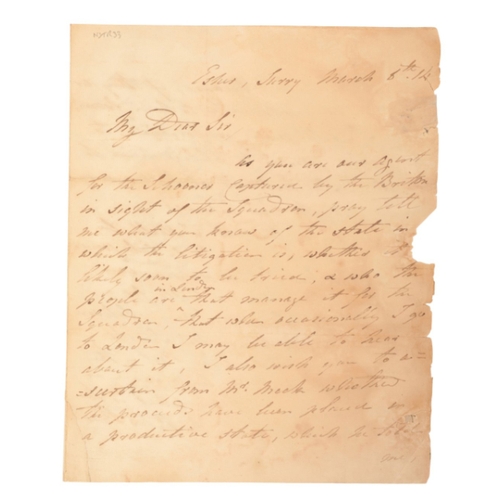 Esher, Surry March 8th 14
My Dear Sir
As you are our agent
for the Schooner Captured by the Briton
in sight of the Squadron, pray tell
me what you know of the state in
which the litigation is, whether it
likely soon to be tried, & who the
people are in London that manage it for the
Squadron, that when occasionally I go
to London I may be able to hear
about it, I also wish you to a=
=scertain from Mr. Meek whether
the proceeds have been placed in
a productive state, which he